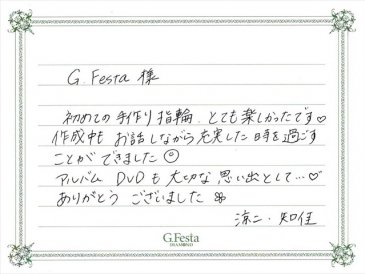 G.Festa 様
初めての手作り指輪、とても楽しかったです♡
作成中も お話しながら充実した時を過ごす
ことができました☺
アルバム DVDも大切な思い出として…♡
ありがとう ございました
涼二・知佳
G.Festa
DIAMOND